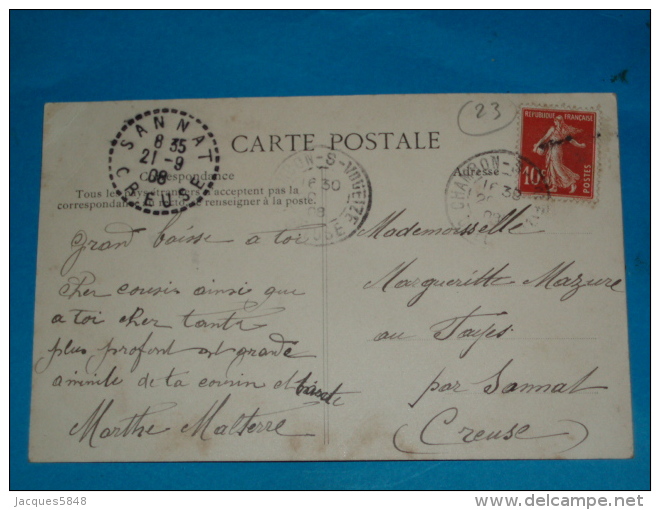 23
SANNAT
8 35
21-9
08
CREUSE
CARTE POSTALE
Correspondance
Tous les étrangers n'acceptent pas la
correspondance se renseigner à la poste.
Adresse
REPUBLIQUE FRANÇAISE
10c
POSTES
CHAMBON-S-VOUEIZE
16 30
08
CREUSE
CHAMBON-S
16 30
Grand baisse a toi
cher cousin ainsi que
a toi cher tante
plus profont et grande
de ta cousin et
Marthe Malterre
Mademoisselle
Margueritte Mazure
au Tayes
par Sannat
(Creuse)
Jacques5848
delcampe.net